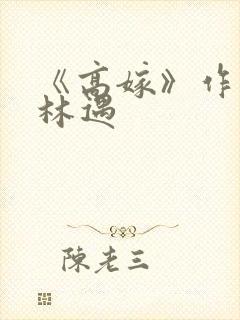 《高嫁》作
林遇
陳老三